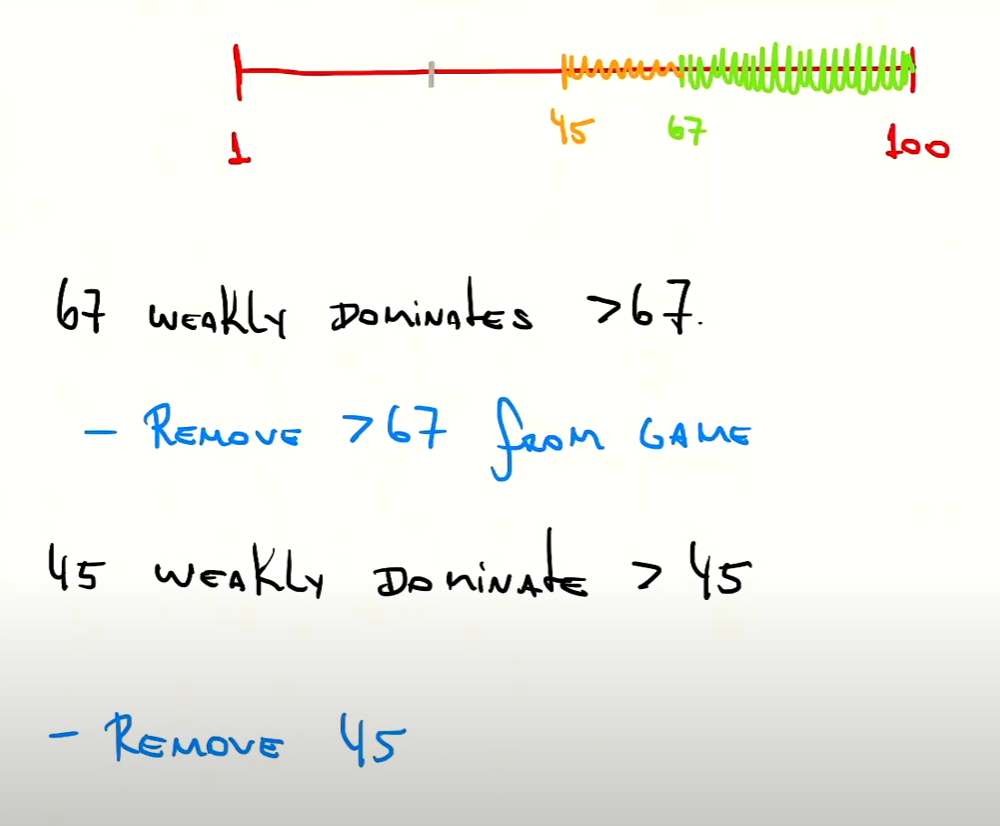 1 45 67 100
67 WEAKLY DOMINATES >67.
- REMOVE >67 from GAME
45 WEAKLY DOMINATE > 45
- REMOVE 45